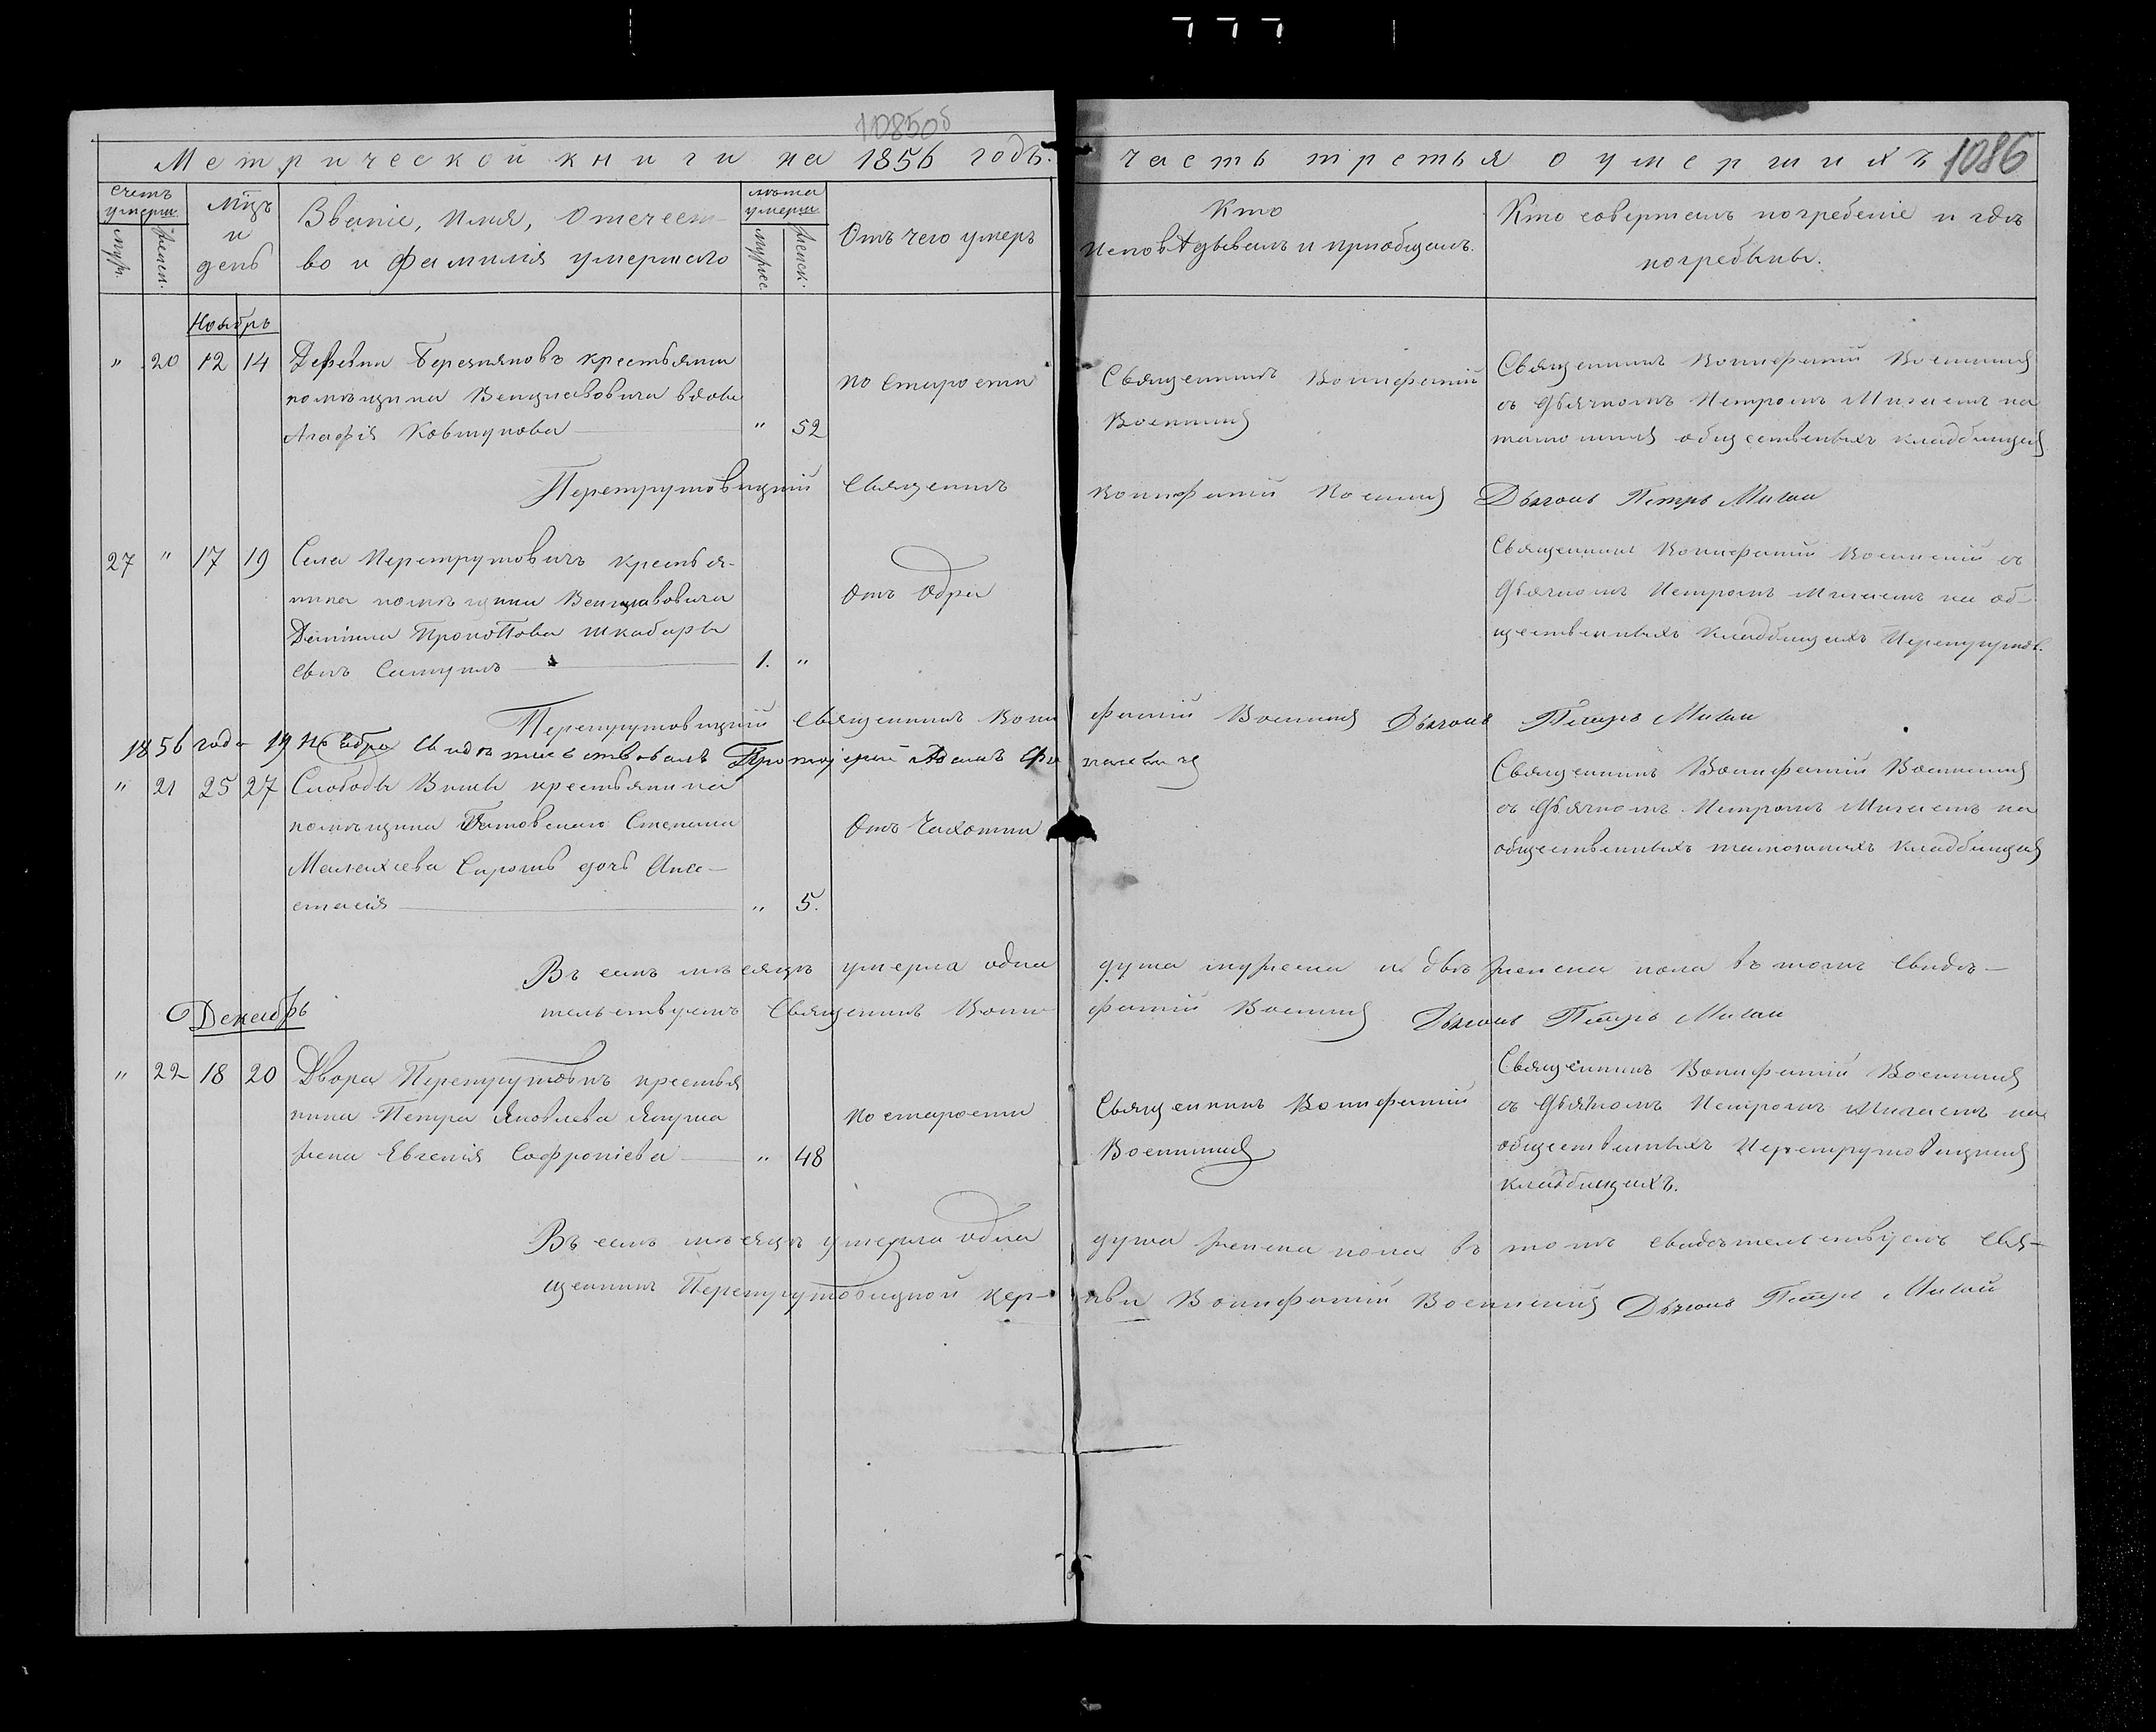 1085об
Метрической книги на 1856 годъ.
часть третья о умершихъ 1086
счетъ умерш.
муж.
женск.
Мцъ и день
Званіе, Имя, Отечест-
во и Фамилія умершаго
лѣта умерш.
мужес.
женск.
Отъ чего умеръ
Кто
исповѣдывалъ и приобщалъ.
Кто совершалъ погребеніе и гдѣ
погребены.
Ноябрь
" 20 12 14 Деревни Березняковъ крестьянина
помѣщика Венцлавовича вдова
Агафія Ковтунова " 52
по старости
Священникъ Вонифатій
Священникъ Вонифатій
съ Дьячкомъ Петромъ на
тамошнихъ общественыхъ кладбищахъ
Перетрутовицкій Священникъ Вонифатій Дьячокъ Петръ
27 " 17 19 Села Перетрутовичъ крестья-
нина помѣщика Венцлавовича
Даніила Прокопова Шкабары
сынъ Самуилъ 1. "
Отъ Одри
Священникъ Вонифатій съ
Дьячкомъ Петромъ на об-
щественныхъ кладбищахъ Перетрутов.
Перетрутовицкій Священникъ Вони фатій Дьячокъ Петръ
1856 года 19 Ноября Свидѣтельствовалъ Протоіерей
" 21 25 27 Слободы крестьянина
помѣщика Степана
Малахіева дочь Ана-
стасія " 5.
Отъ Чахотки
Священникъ Вонифатій
съ Дьячкомъ Петромъ на
общественныхъ тамошнихъ кладбищахъ
Въ семъ мѣсяцѣ умерла одна душа мужеска и двѣ женска пола въ томъ Свидѣ-
тельствуетъ Священникъ Вони- фатій Дьячокъ Петръ
Декабрь
" 22 18 20 Двора Перетрутовичъ крестья
нина Петра Яковлева
жена Евгенія Софроніева " 48
по старости
Священникъ Вонифатій
Священникъ Вонифатій
съ Дьячкомъ Петромъ на
общественныхъ Перетрутовицкихъ
кладбищахъ.
Въ семъ мѣсяцѣ умерла одна душа женска пола въ томъ свидѣтельствуетъ Свя-
щенникъ Перетрутовицкой цер- кви Вонифатій Дьячокъ Петръ